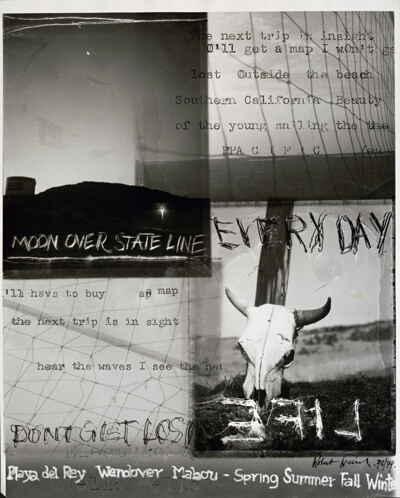 The next trip is insight
I'll get a map I wOn't ge
lost Outside the beach
Southern California Beauty
of the young sailing the
PPA C I F C
MOON OVER STATE LINE
EVERY DAY
'll havs to buy a map
the next trip is in sight
hear the waves I see the ne
DONT GET LOST
LIFE
Playa del Rey Wendover Mabou - Spring Summer Fall Winte